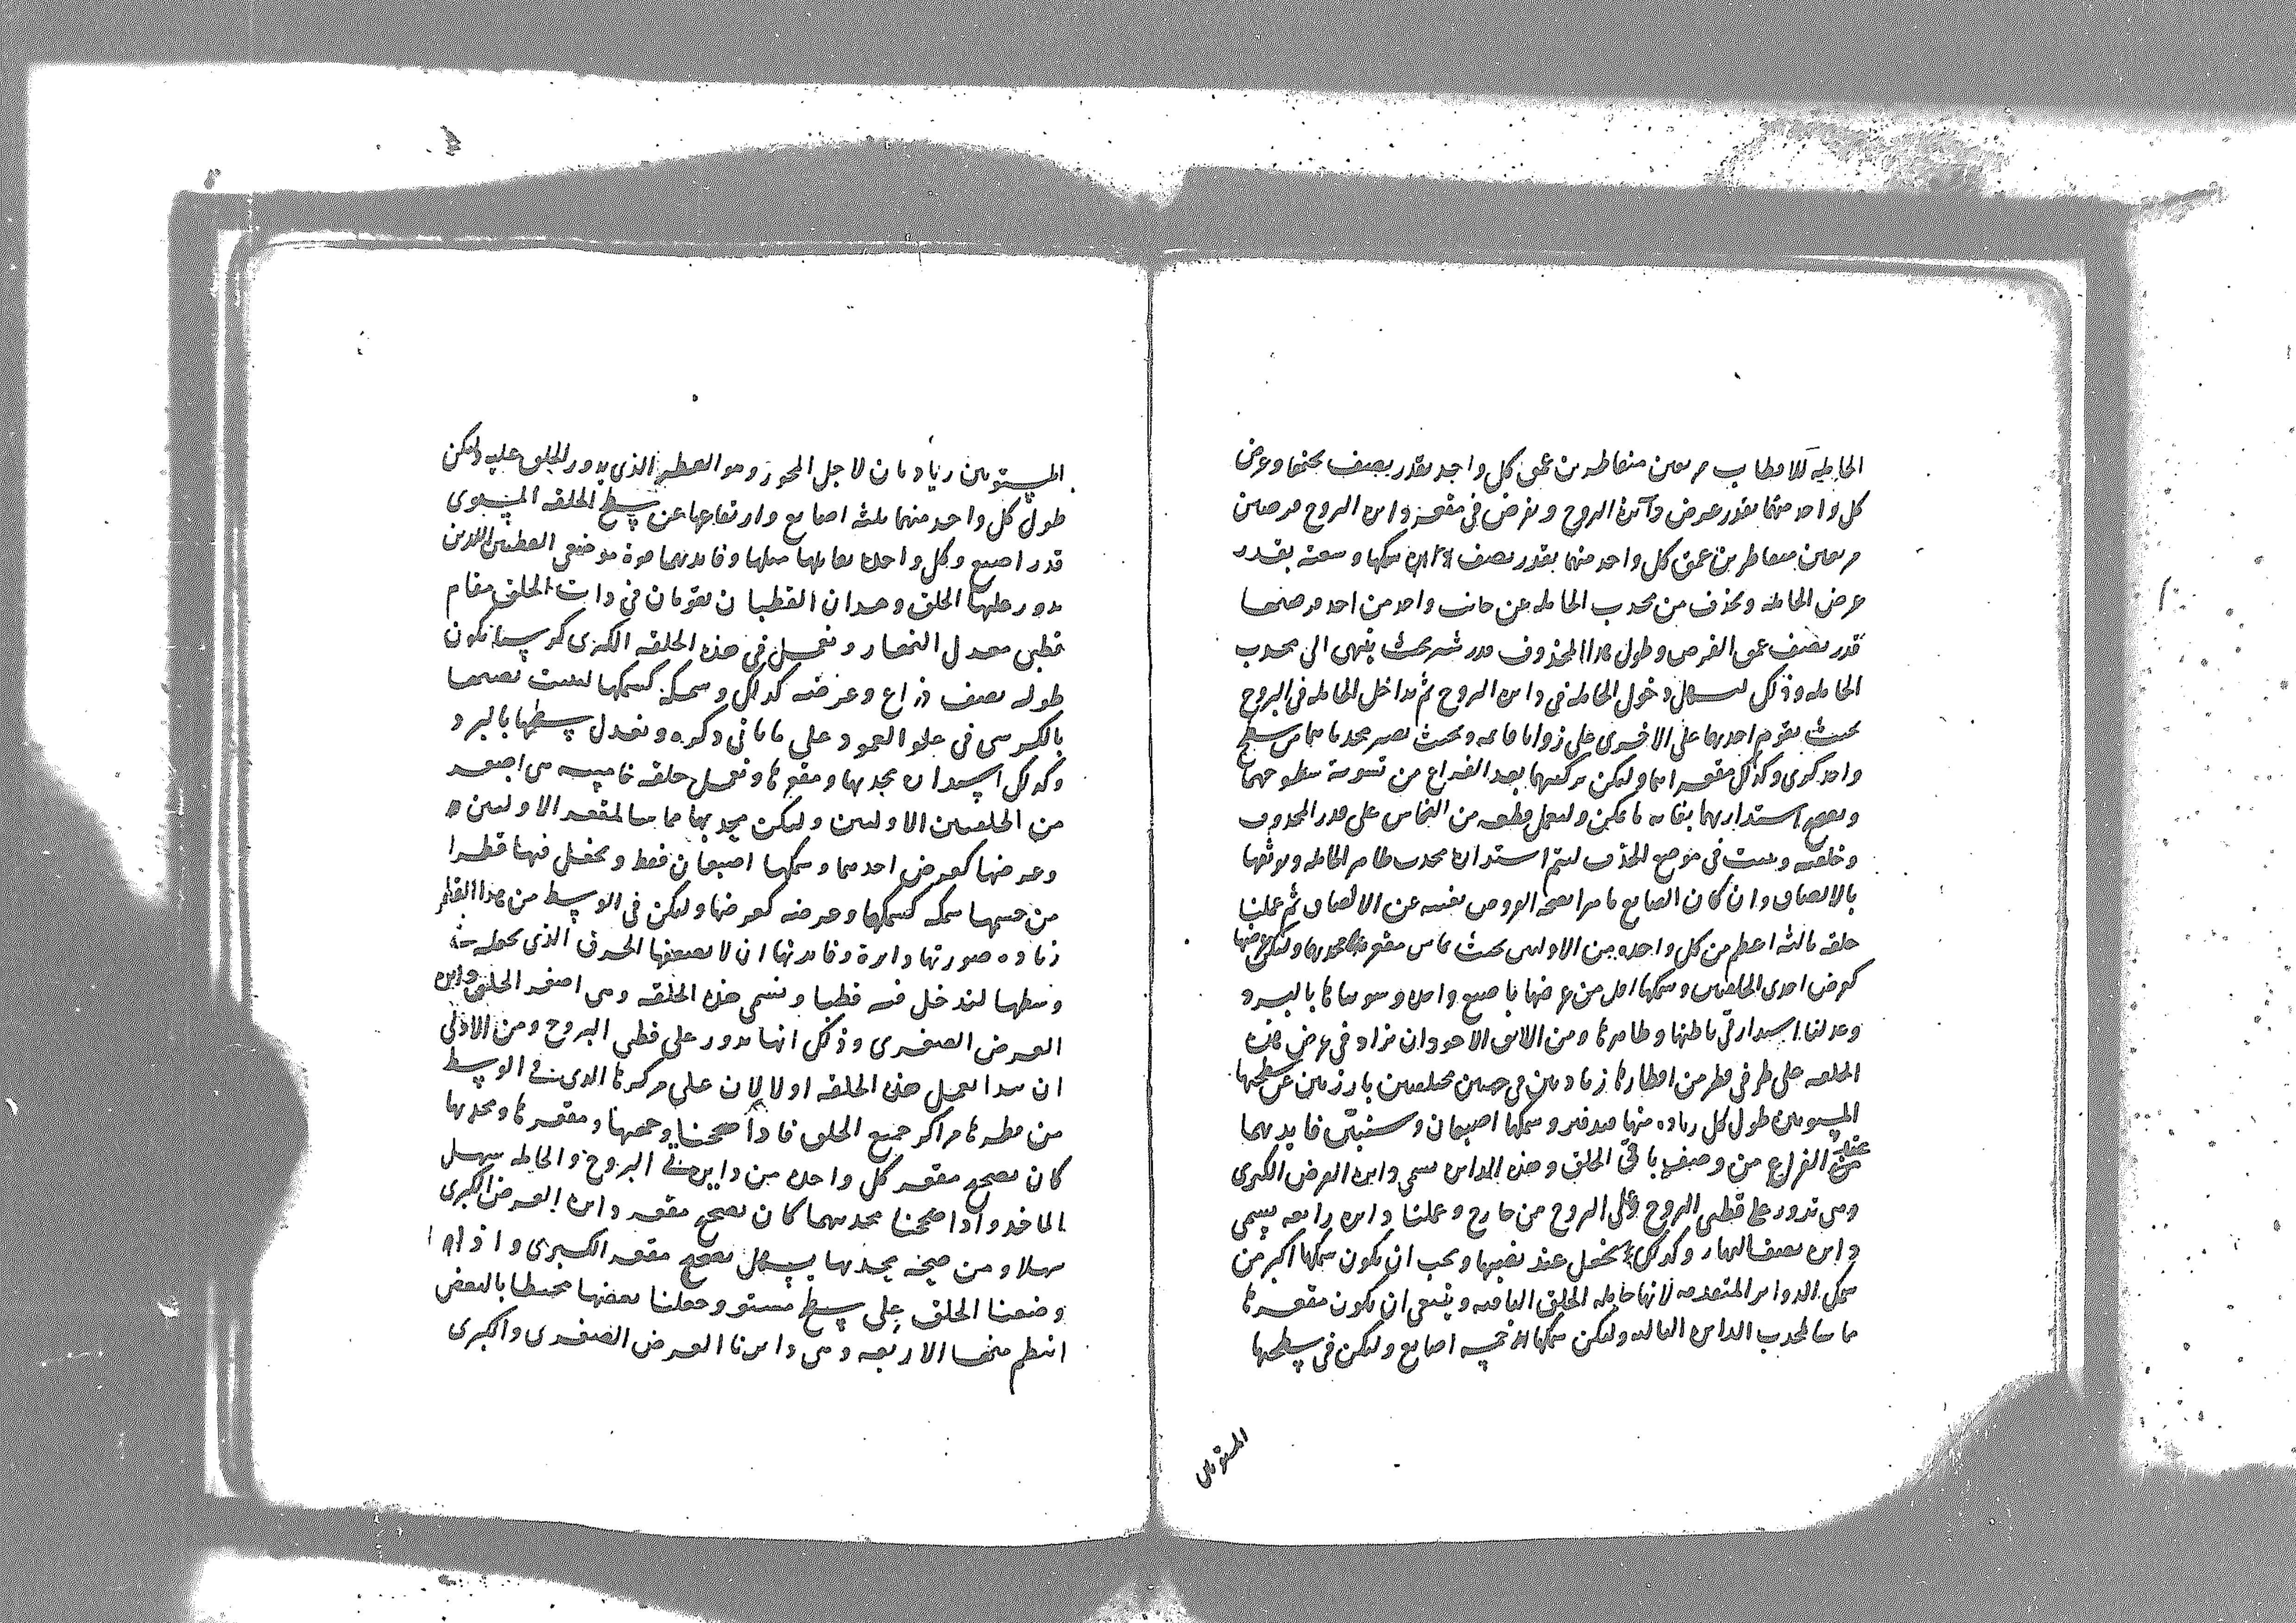 الحاملة للاقطاب مربعين متقاطرين عمق كل واحد بقدر نصف ثخنها وعرض
كل واحد منهما بقدر عرض دائرة البروج ونفرض في مقعر دائرة البروج فرضين
مربعين متقاطرين عمق كل واحد منهما بقدر نصف سمكها وسعته بقدر
عرض الحاملة ونحذف من محدب الحاملة عن جانب واحد من احد فرضيها
قدر نصف عمق الفرض وطول هذا المحذوف قدر شبر بحيث ينتهى الى محدب
الحاملة وذلك ليسهل دخول الحاملة في دائرة البروج ثم نداخل الحاملة في البروج
بحيث تقوم احديهما على الاخرى على زوايا قائمة وبحيث يصير محدباهما في سطح
واحد كرى وكذلك مقعراهما وليكن تركيبهما بعد الفراغ من تسوية سطوحهما
وتصحيح استدارتهما بغاية ما يمكن وليعمل قطعة من النحاس على قدر المحذوف
وخلقته ويثبت في موضع الحذف ليتم استدارة محدب ظاهر الحاملة ونوثقها
بالالصاق وان كان الصانع ماهرا فصحة الفروض تغنيه عن الالصاق ثم عملنا
حلقة ثالثة اعظم من كل واحدة من الاوليين بحيث يماس مقعرها محدبهما وليكن عرضها
كعرض احدى الحلقتين وسمكها اقل من عرضها باصبع واحدة وسويناها بالبرد
وعدلنا استدارتى باطنها وظاهرها ومن الاليق الاجود ان نزاد في عرض هذه
الحلقة على طرفى قطر من اقطارها زيادتين في جهتين مختلفتين بارزتين عن سطحيها
المستويين طول كل زيادة منها وسمكها اصبعان وستبين فايدتهما
عند الفراغ من وصف باقى الحلق وهذه الدائرة تسمى دائرة العرض الكبرى
وهى تدور على قطبى البروج وعلى البروج من خارج وعملنا دائرة رابعة تسمى
دائرة نصف النهار وكذلك تجعل عند نصبها ويجب ان يكون سمكها اكبر من
سمك الدوائر المتقدمة لانها حاملة الحلق الباقية وينبغى ان يكون مقعرها
مماسا لمحدب الدائرة الثالثة وليكن سمكها خمسة اصابع وليكن في سطحيها
المستويين
المستويين زيادتان لاجل المحور وهو القطر الذى يدور الحلق عليه وليكن
طول كل واحد منهما ثلثة اصابع وارتفاعها عن سطح الحلقة المستوى
قدر اصبع وكل واحدة تقابلها مثلها وفايدتهما قوة موضعى القطبين اللذين
يدور عليها الحلق وهذان القطبان يقومان في ذات الحلق مقام
قطبى معدل النهار ونعمل في هذه الحلقة الكبرى كرسيا يكون
طوله نصف ذراع وعرضه كذلك وسمكه كسمكها ليثبت نصفها
بالكرسى في علو العمود على ما ياتى ذكره ونعدل سطحها بالبرد
وكذلك استدارة محدبها ومقعرها ونعمل حلقة خامسة هى اصغر
من الحلقتين الاوليين وليكن محدبها مماسا لمقعر الاوليين
وعرضها كعرض احديهما وسمكها اصبعان فقط ونجعل فيها قطرا
من جسمها سمكه كسمكها وعرضه كعرضها وليكن في الوسط من هذا القطر
زيادة صورتها دائرة وفايدتها ان لا يضعفها الخرق الذى نجعله في
وسطها لندخل فيه قطبا ونسمى هذه الحلقة وهى اصغر الحلق دائرة
العرض الصغرى وذلك انها تدور على قطبى البروج ومن الاولى
ان نبدا بعمل هذه الحلقة اولا لان على مركزها الذى في الوسط
من قطرها مراكز جميع الحلق فاذا صححنا وجهها ومقعرها ومحدبها
كان تصحيح مقعر كل واحدة من دايرتى البروج والحاملة سهل
الماخذ واذا صححنا محدبيهما كان تصحيح مقعر دائرة العرض الكبرى
سهلا ومن صحة محدبها يسهل تصحيح مقعر الكبرى واذا
وضعنا الحلق على سطح مستو وجعلنا بعضها محيطا بالبعض
انتظم منها الاربعة وهى دايرتا العرض الصغرى والكبرى